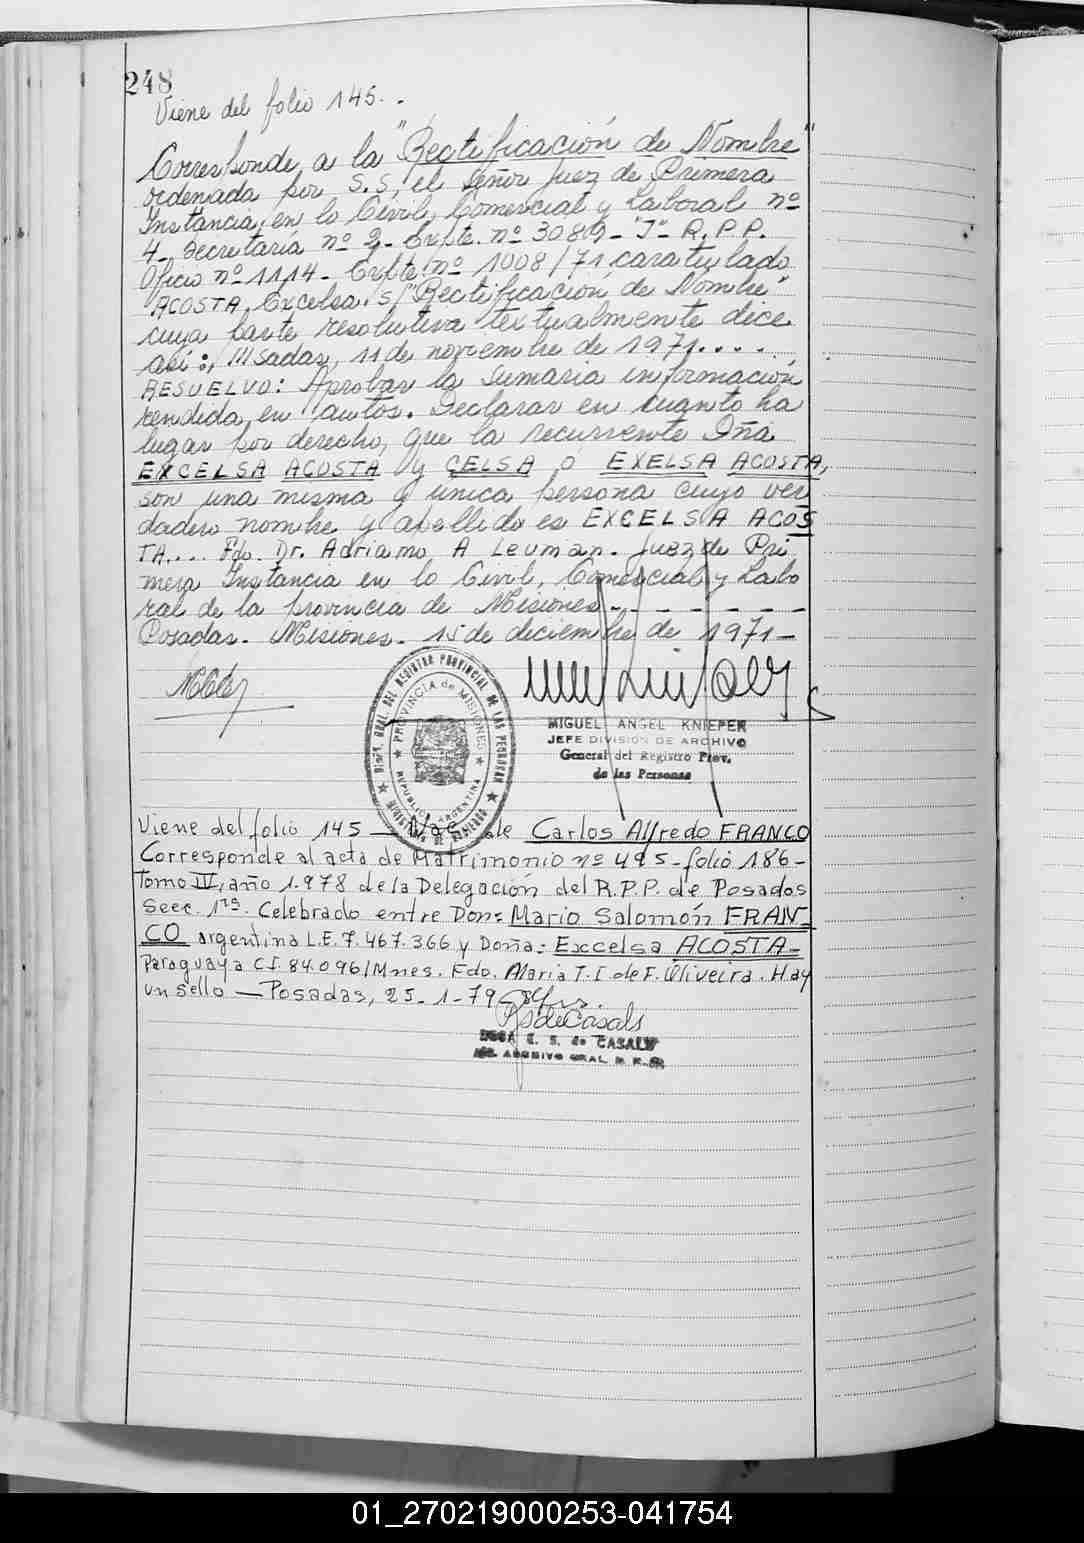 248
Viene del folio 145.-
Corresponde a la "Rectificación de Nombre"
ordenada por S.S, el Señor Juez de Primera
Instancia, en lo Civil, Comercial y Laboral nº
4- Secretaría nº 2- Expte. nº 30819- "J"- R.P.P.
Oficio nº 1114- Expte. nº 1008/71 caratulado
ACOSTA, Excelsa. s/"Rectificación de Nombre"
cuya parte resolutiva textualmente dice
así:, ///sadas, 11 de noviembre de 1971....
RESUELVO: Aprobar la Sumaria información
rendida en autos. Declarar en cuanto ha
lugar por derecho, que la recurrente Dña
EXCELSA ACOSTA y CELSA ó EXELSA ACOSTA,
son una misma y única persona cuyo ver
dadero nombre y apellido es EXCELSA ACOS
TA.... Fdo. Dr. Adriamo A Leuman. Juez de Pri
mera Instancia en lo Civil, Comercial y Labo
ral de la provincia de Misiones.- - - - - - -
Posadas. Misiones. 15 de diciembre de 1971-
DISP. GRAL DEL REGISTRO PROVINCIAL DE LAS PERSONAS
PROVINCIA de MISIONES
REPUBLICA ARGENTINA
MINISTERIO DE GOBIERNO
MIGUEL ANGEL KNIEPER
JEFE DIVISION DE ARCHIVO
General del Registro Prov.
de las Personas
Viene del folio 145 - Nac. de Carlos Alfredo FRANCO
Corresponde al acta de Matrimonio nº 495-folio 186-
Tomo IV, año 1.978 de la Delegación del R.P.P. de Posadas
Secc. 1ra. Celebrado entre Don: Mario Salomón FRAN-
CO argentina L.E. 7.467.366 y Doña: Excelsa ACOSTA-
Paraguaya C.I. 84.096/Mnes. Fdo. Maria T. I. de F. Oliveira. Hay
un sello - Posadas, 25-1-79-
RS de Casals
E. S. de CASALS
ARCHIVO GRAL. R.
01_270219000253-041754